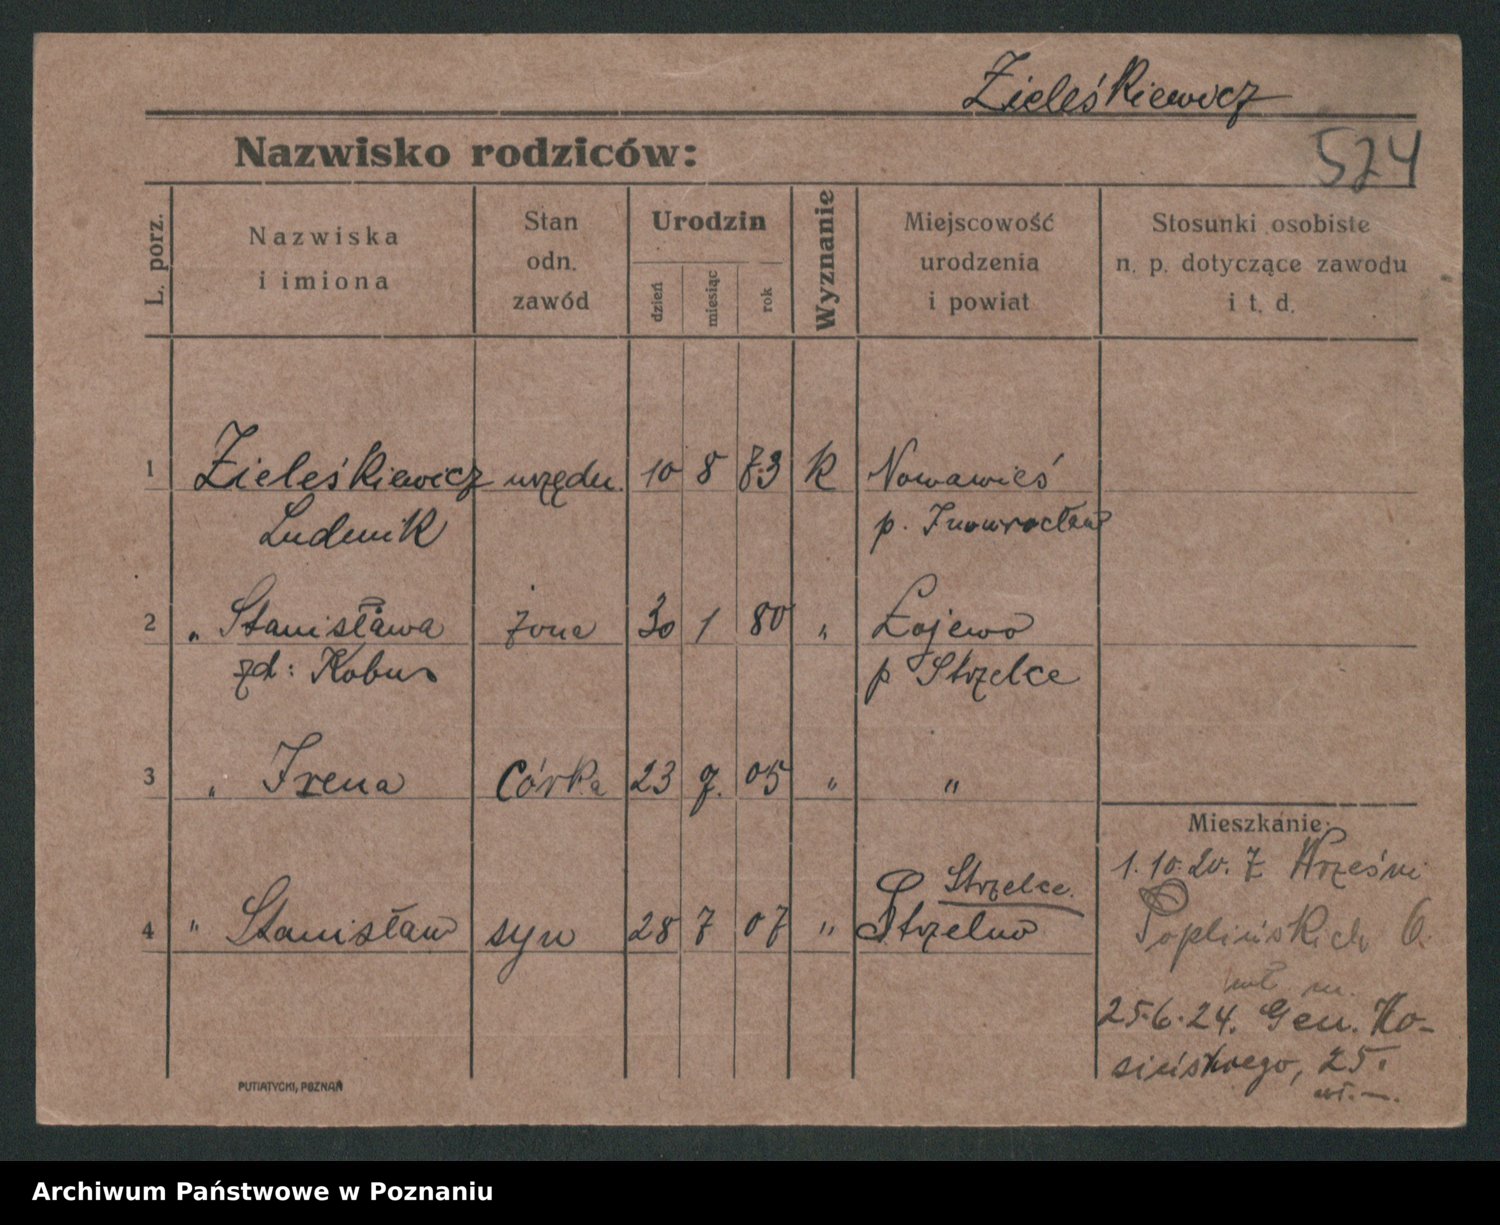 Zieleśkiewicz
Nazwisko rodziców:
524
L. porz.
Nazwiska
i imiona
Stan
odn.
zawód
Urodzin
dzień
miesiąc
rok
Wyznanie
Miejscowość
urodzenia
i powiat
Stosunki osobiste
n. p. dotyczące zawodu
i t. d.
1 Zieleśkiewicz urzędn. 10 8 73 k Nowawieś
Ludwik p. Inowrocław
2 " Stanisława żona 30 1 80 " Łojewo
zd: Kobus p Strzelce
3 " Irena córka 23 9. 05 " "
Mieszkanie:
1.10.20. z Wrześni
Strzelce.
4 " Stanisław syn 28 7 07 " Strzelno
Poplińskich 6.
25.6.24. Gen. Ko-
sińskiego, 25.
PUTIATYCKI, POZNAŃ
Archiwum Państwowe w Poznaniu